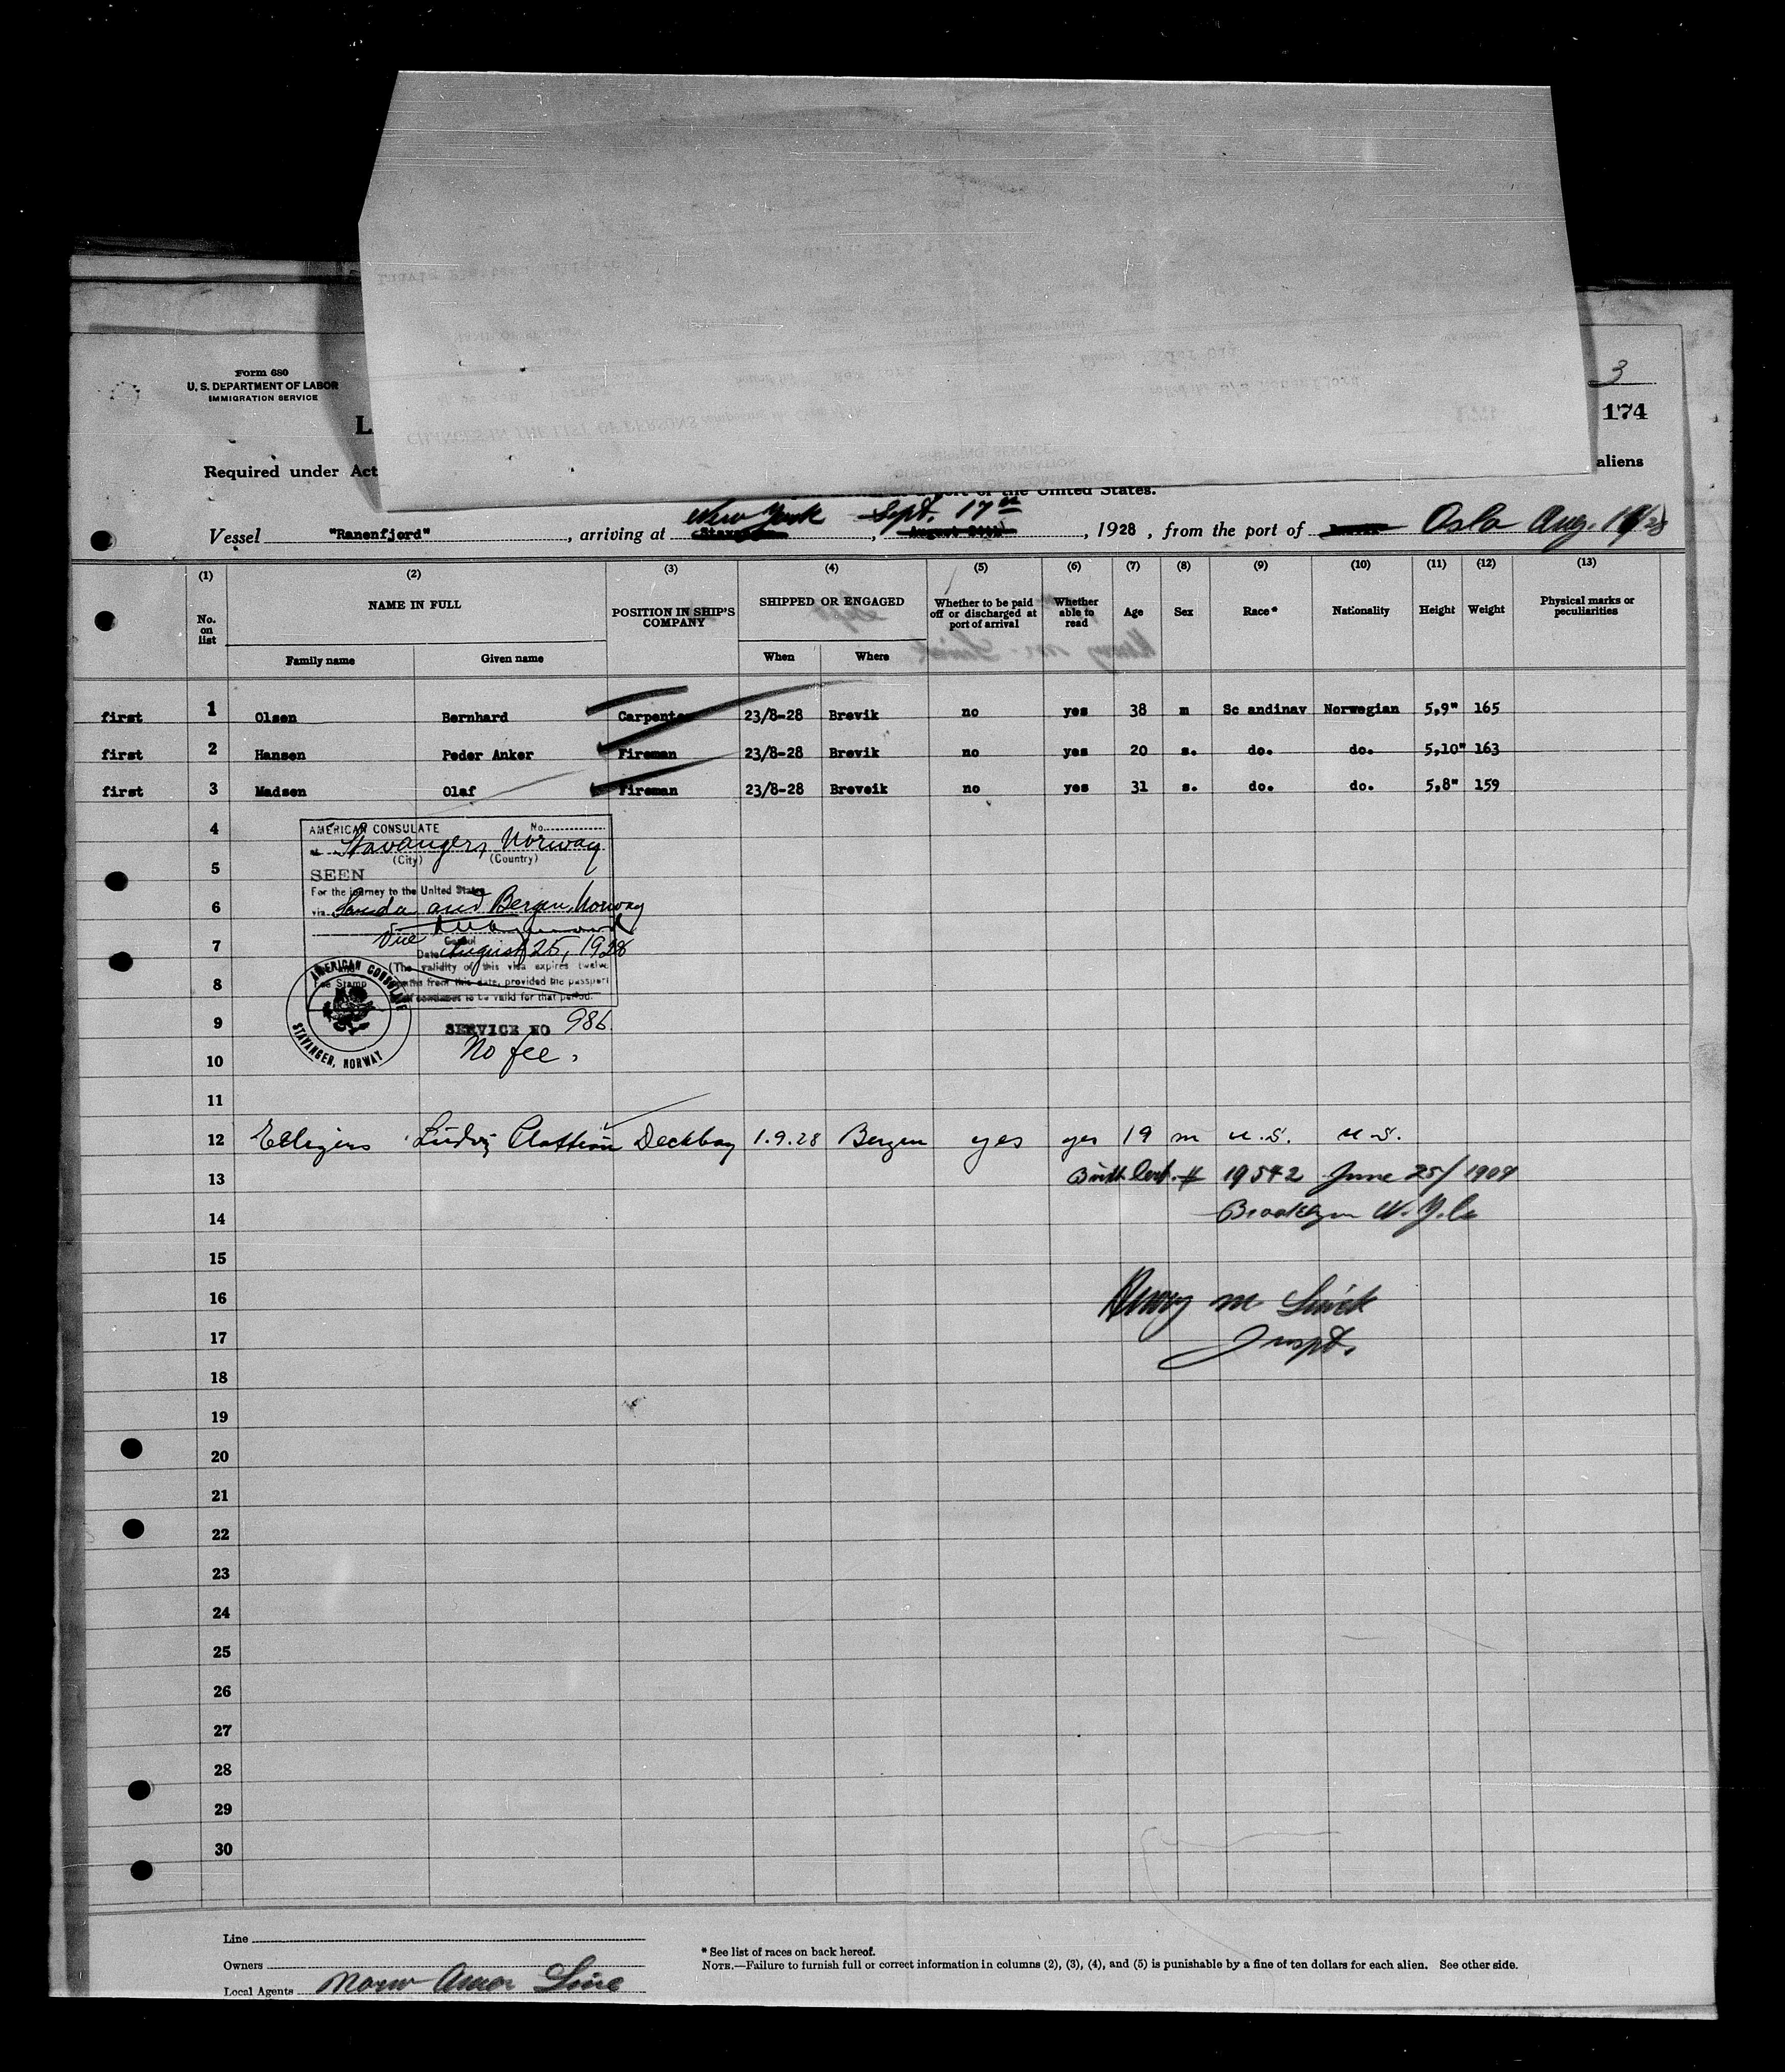 Form 680
U. S. DEPARTMENT OF LABOR
IMMIGRATION SERVICE
3
174
L
Required under Act
aliens
port of the United States.
Vessel "Ranenfjord", arriving at New York Sept. 17th, 1928, from the port of Oslo Aug.
(1) (2) (3) (4) (5) (6) (7) (8) (9) (10) (11) (12) (13)
No. on list NAME IN FULL POSITION IN SHIP'S COMPANY SHIPPED OR ENGAGED Whether to be paid off or discharged at port of arrival Whether able to read Age Sex Race* Nationality Height Weight Physical marks or peculiarities
Family name Given name When Where
first 1 Olsen Bernhard Carpenter 23/8-28 Brevik no yes 38 m Sc andinav Norwegian 5,9" 165
first 2 Hansen Peder Anker Fireman 23/8-28 Brevik no yes 20 s. do. do. 5,10" 163
first 3 Madsen Olaf Fireman 23/8-28 Breveik no yes 31 s. do. do. 5,8" 159
4
AMERICAN CONSULATE No.
Stavanger, Norway
(City) (Country)
5
SEEN
For the journey to the United States
6
via and Bergen, Norway
Vice
Consul
7
Date August 25, 1928
(The validity of this visa expires twelve
8
months from this date, provided the passport
continues to be valid for that period.
Fee Stamp
AMERICAN CONSULATE
STAVANGER, NORWAY
9
SERVICE NO 986
No fee.
10
11
12 Ludvig Deckboy 1.9.28 Bergen yes yes 19 m U.S. U.S.
13 Birth Cert. # 19542 June 25/1909
14 Brooklyn N.Y.
15
16 Henry M.
17 Inspt.
18
19
20
21
22
23
24
25
26
27
28
29
30
Line
Owners
Local Agents Norw Amer Line
* See list of races on back hereof.
NOTE.—Failure to furnish full or correct information in columns (2), (3), (4), and (5) is punishable by a fine of ten dollars for each alien. See other side.